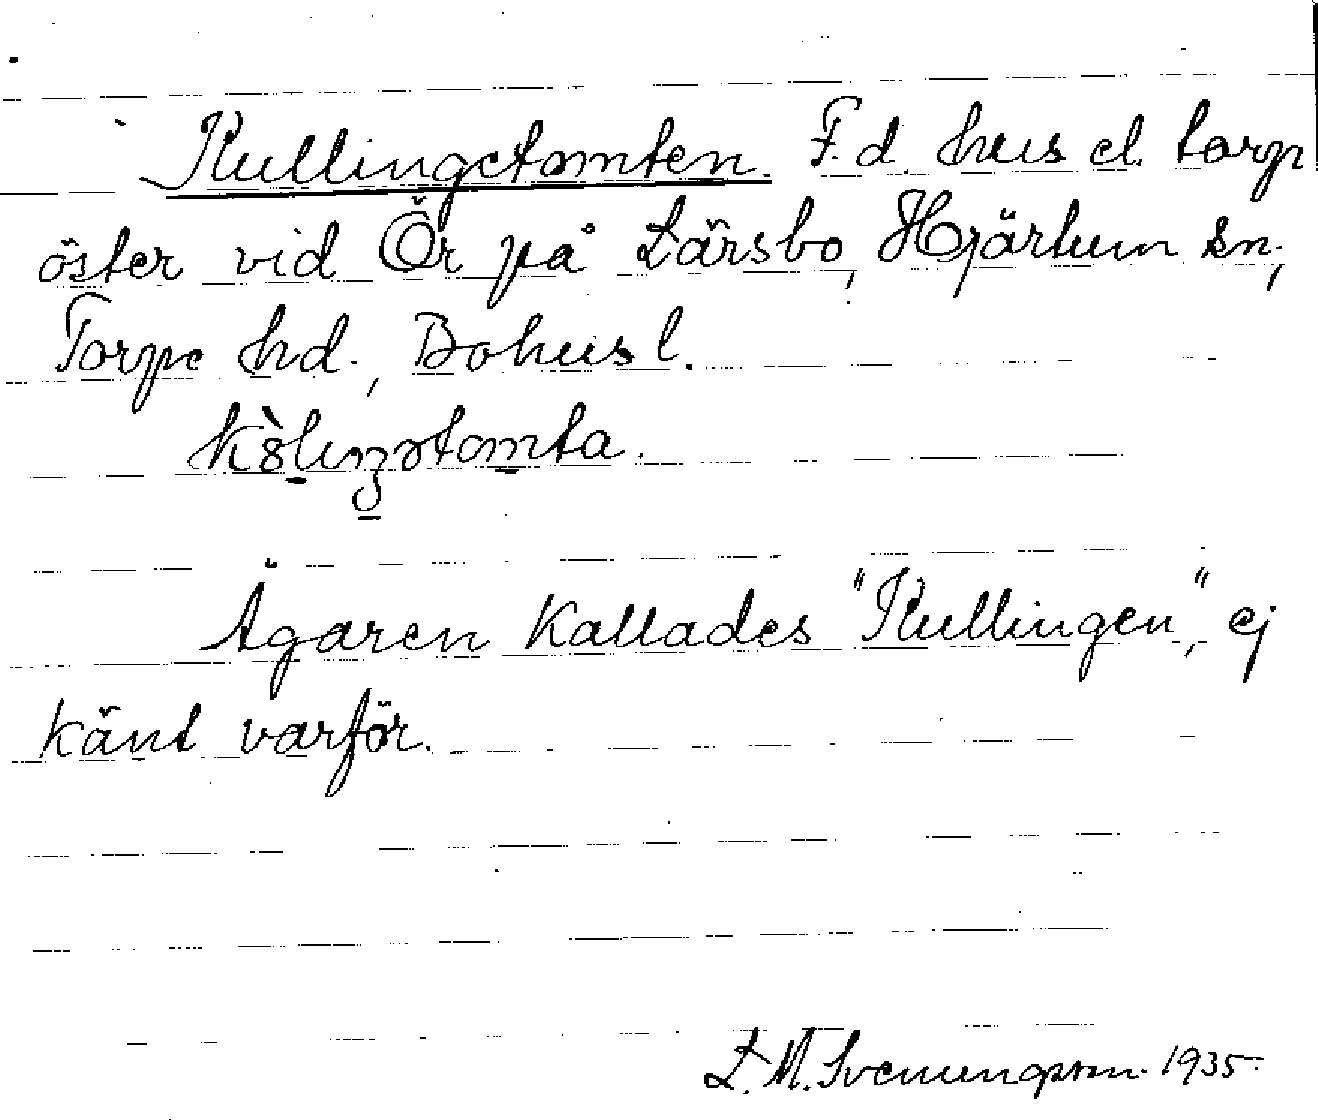 Kullingetomten. F.d. hus el. torp
öster vid Ör på Lärsbo, Hjärtum sn;
Torpe hd., Bohusl.
Ägaren kallades "Kullingen", ej
känt varför.
L. M. Svenungsson. 1935.